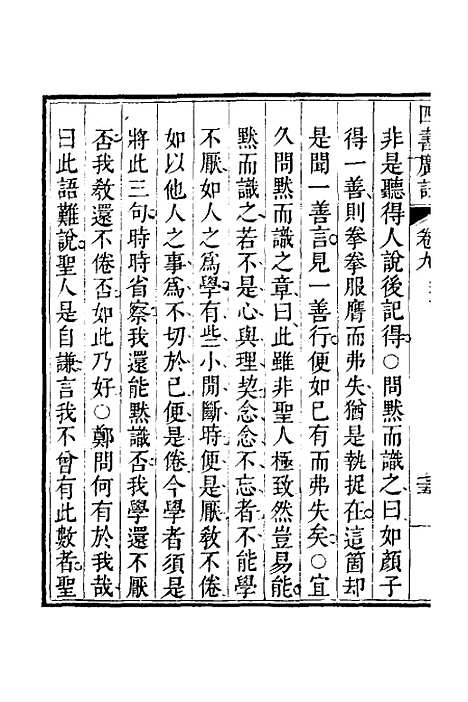 四書廣註 卷九
非是聽得人說後記得○問默而識之曰如顔子
得一善則拳拳服膺而弗失猶是執捉在這箇却
是聞一善言見一善行便如已有而弗失矣○宜
久問默而識之章曰此雖非聖人極致然豈易能
默而識之若不是心與理契念念不忘者不能學
不厭如人之爲學有些小閒斷時便是厭教不倦
如以他人之事爲不切於已便是倦今學者須是
將此三句時時省察我還能默識否我學還不厭
否我教還不倦否如此乃好○鄭問何有於我哉
曰此語難說聖人是自謙言我不曾有此數者聖